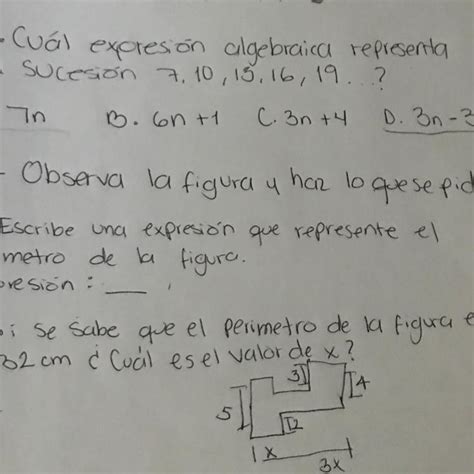 Cuál expresión algebraica representa
sucesión 7, 10, 15, 16, 19 . . . ?
7n B. 6n+1 C. 3n+4 D. 3n-3
- Observa la figura y haz lo que se pid
Escribe una expresión que represente el
metro de la figura.
presión : ___ ,
i se sabe que el perimetro de la figura e
32 cm ¿ Cuál es el valor de x?
3
4
5
2
x
3x